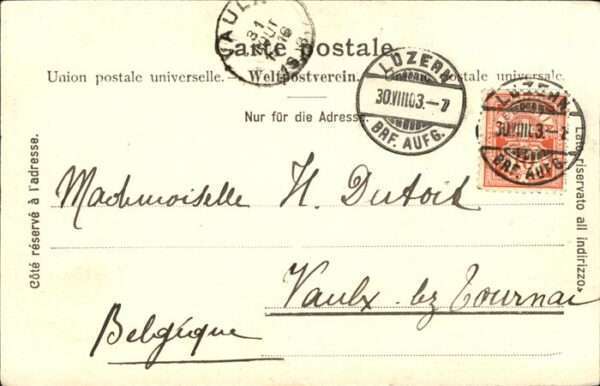 VAULX
31
AOUT
Carte postale.
LUZERN
30.VIII.03.-7
BRF. AUFG.
LUZERN
30.VIII.03.-7
BRF. AUFG.
Union postale universelle. — Weltpostverein. — postale universale.
Nur für die Adresse
Côté réservé à l'adresse.
Lato riservato all indirizzo.
Mademoiselle H. Dutoit
Vaulx-lez Tournai
Belgique